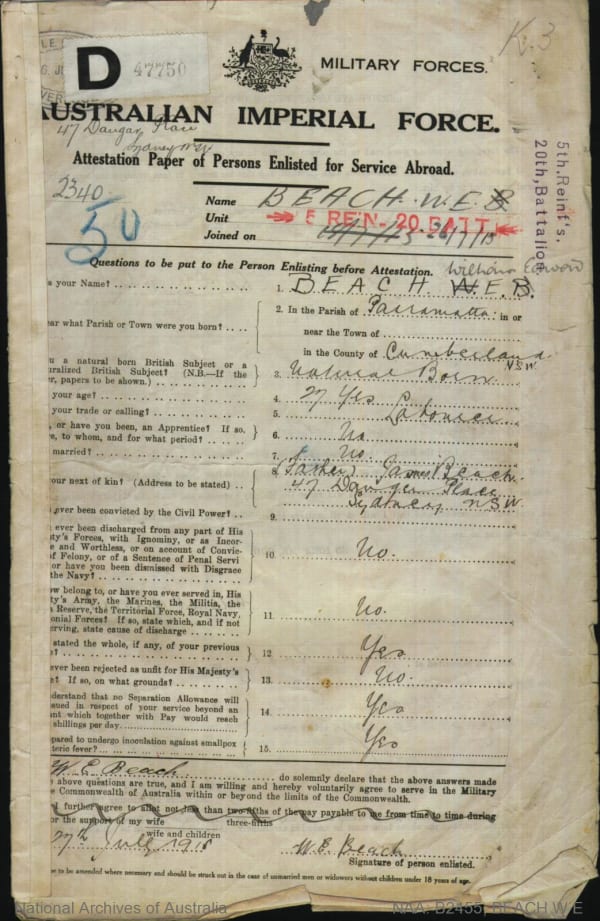 K.3
D 47750
MILITARY FORCES.
AUSTRALIAN IMPERIAL FORCE.
47 Dangar Place
Sydney NSW
Attestation Paper of Persons Enlisted for Service Abroad.
2340
50
Name BEACH. W.E.B
Unit 5 REIN- 20 BATT.
Joined on 26/7/15
5th, Reinf's,
20th, Battalion
Questions to be put to the Person Enlisting before Attestation.
William Edward
s your Name? 1. BEACH. W.E.B.
ear what Parish or Town were you born? 2. In the Parish of Parramatta in or
near the Town of
in the County of Cumberland NSW
u a natural born British Subject or a
uralized British Subject? (N.B.—If the
er, papers to be shown.) 3. Natural Born
your age? 4. 27 Yrs
your trade or calling? 5. Labourer
, or have you been, an Apprentice? If so,
e, to whom, and for what period? 6. No
married? 7. No.
our next of kin? (Address to be stated) 8. (Father) James Beach.
47 Dangar Place
Sydney NSW.
ever been convicted by the Civil Power? 9.
ever been discharged from any part of His
ty's Forces, with Ignominy, or as Incor-
e and Worthless, or on account of Convic-
f Felony, or of a Sentence of Penal Servi
or have you been dismissed with Disgrace
the Navy? 10. No.
ow belong to, or have you ever served in, His
ty's Army, the Marines, the Militia, the
Reserve, the Territorial Force, Royal Navy,
onial Forces? If so, state which, and if not
erving, state cause of discharge 11. No.
stated the whole, if any, of your previous
? 12. Yes
ever been rejected as unfit for His Majesty's
? If so, on what grounds? 13. No.
derstand that no Separation Allowance will
sued in respect of your service beyond an
nt which together with Pay would reach
shillings per day. 14. Yes
epared to undergo inoculation against smallpox
teric fever? 15. Yes
W. E Beach do solemnly declare that the above answers made
above questions are true, and I am willing and hereby voluntarily agree to serve in the Military
e Commonwealth of Australia within or beyond the limits of the Commonwealth.
I further agree to allot not less than two-fifths of the pay payable to me from time to time during
or the support of my wife three-fifths
wife and children
27th July 1915
W.E. Beach
Signature of person enlisted.
e to be amended where necessary and should be struck out in the case of unmarried men or widowers without children under 18 years of age.
National Archives of Australia
NAA: B2455, BEACH W E